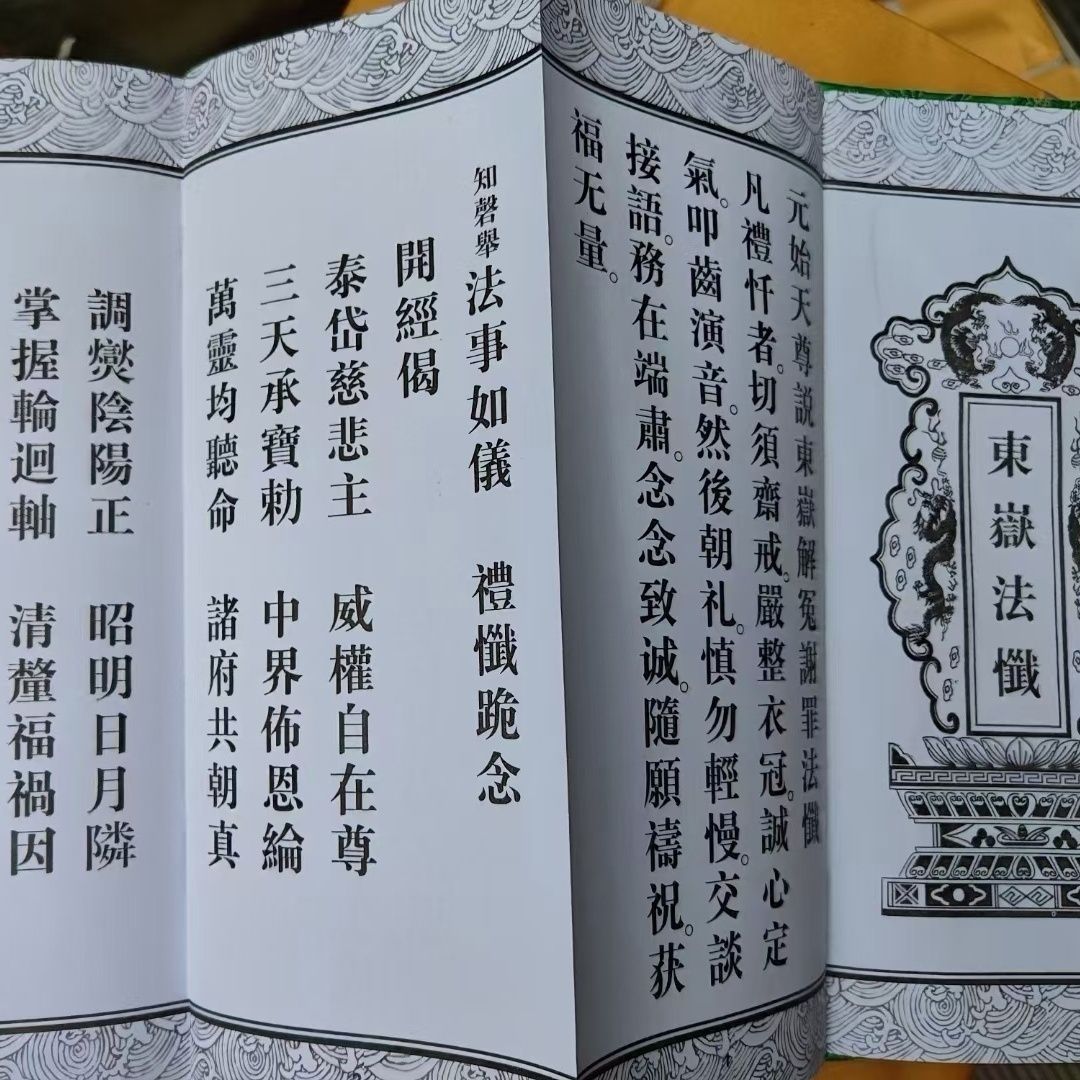 東嶽法懺
元始天尊説東嶽解冤謝罪法懺
凡禮忏者。切須齋戒。嚴整衣冠。誠心定
氣。叩齒演音。然後朝礼。慎勿輕慢。交談
接語。務在端肅。念念致诚。隨願禱祝。获
福无量。
知磬舉法事如儀　禮懺跪念
開經偈
泰岱慈悲主　威權自在尊
三天承寶勅　中界佈恩綸
萬靈均聽命　諸府共朝真
調燮陰陽正　昭明日月隣
掌握輪迴軸　清釐福禍因